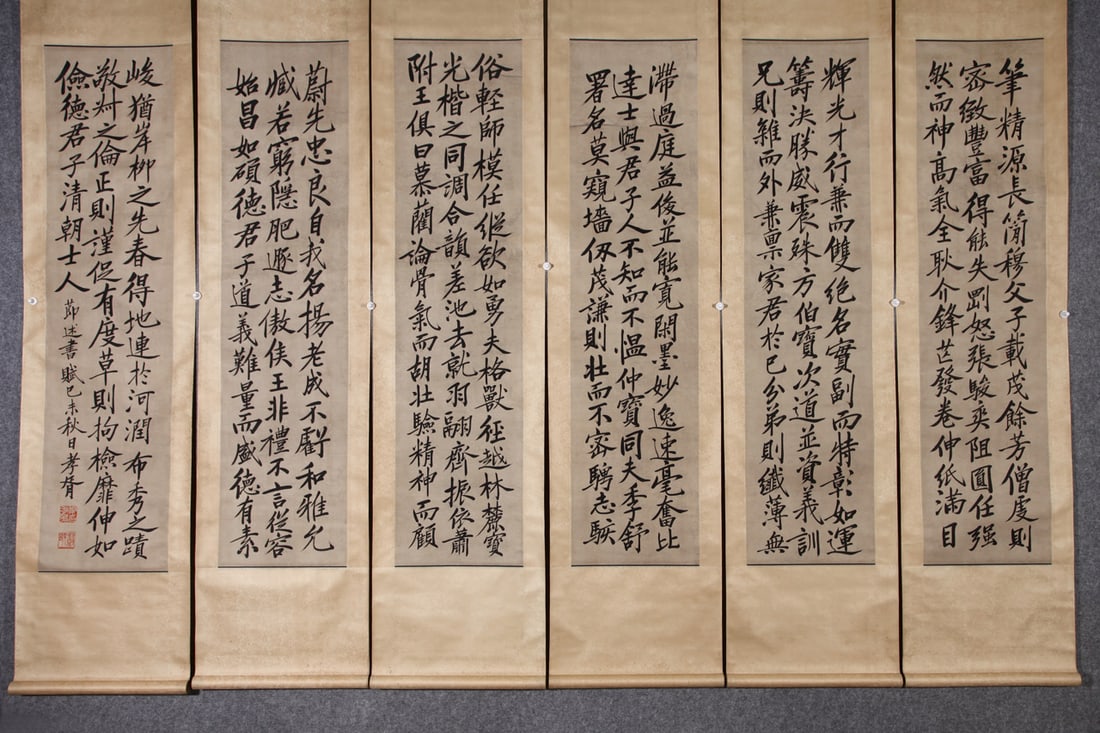 筆精源長簡穆父子載茂餘芳僧虔則
密緻豐富得能失剛怒張駿爽阻圓任强
然而神高氣全耿介鋒芒發卷伸紙滿目
輝光才行兼而雙絕名實副而特彰如運
籌決勝威震殊方伯寶次道並資義訓
兄則雜而外兼票家君於已分弟則纖薄無
滯過庭益俊並能寬閑墨妙逸速毫奮比
達士與君子人不知而不愠仲寶同夫季舒
署名莫窺墻仭茂謙則壯而不密騁志駭
俗輕師模任縱欲如勇夫格獸徑越林麓寶
光楷之同調合韻差池去就羽翮齊振依蕭
附王俱曰慕藺論骨氣而胡壯驗精神而顧
蔚先忠良自我名揚老成不虧和雅允
臧若窮隱肥遯志傲侯王非禮不言從容
始昌如碩德君子道義難量而盛德有素
峻猶岸柳之先春得地連於河潤布秀之蹟
敬叔之倫正則謹促有度草則拘檢靡伸如
儉德君子清朝士人
節述書賦己未秋日孝胥